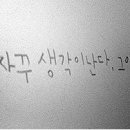 자꾸 생각이난다, 그